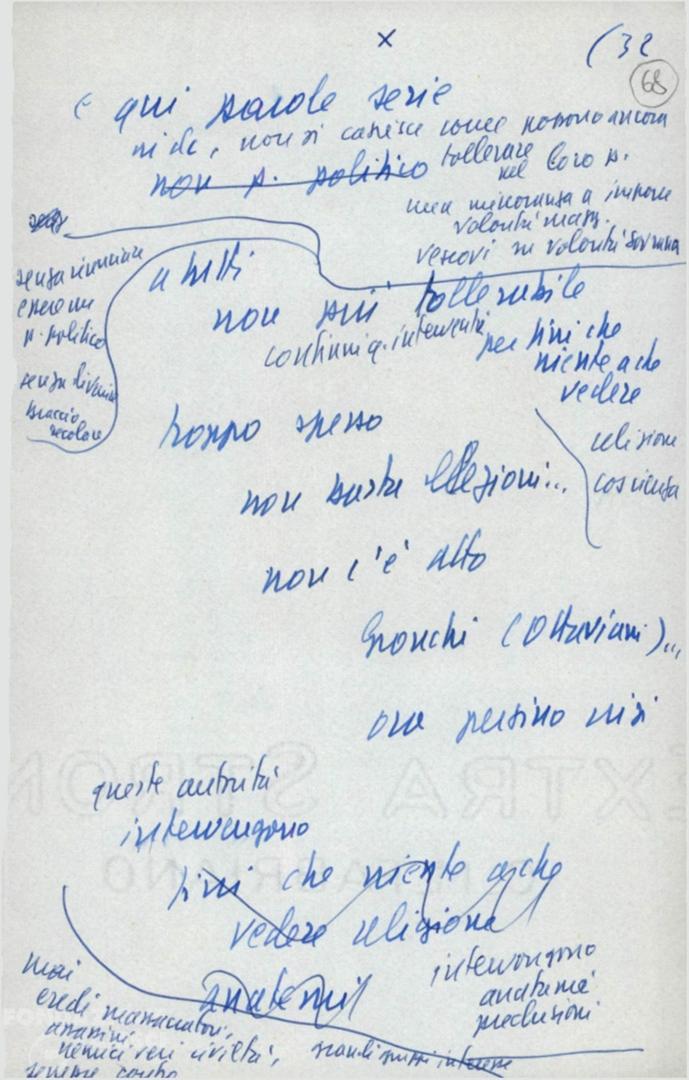 x
(32
68
e qui parole serie
mi dc, non si capisce come possono ancora
tollerare
nel loro p.
non p. politico
una minoranza a imporre
volontà magg.
vescovi su volontà sovrana
senza rinunciare
essere un
p. politico
senza divenire
braccio
secolare
a tutti
non più tollerabile
continui q. interventi
per fini che
niente a che
vedere
religione
coscienza
troppo spesso
non basta elezioni...
non c'è atto
Gronchi (Ottaviani)...
ora persino crisi
queste autorità
intervengono
fini che niente a che
vedere religione
anatemi
intervengono
anatemi
preclusioni
mai
eredi massacratori,
assassini,
nemici veri civiltà,
grandi gruppi interesse
sempre contro
EXTRA STRONG
FABRIANO